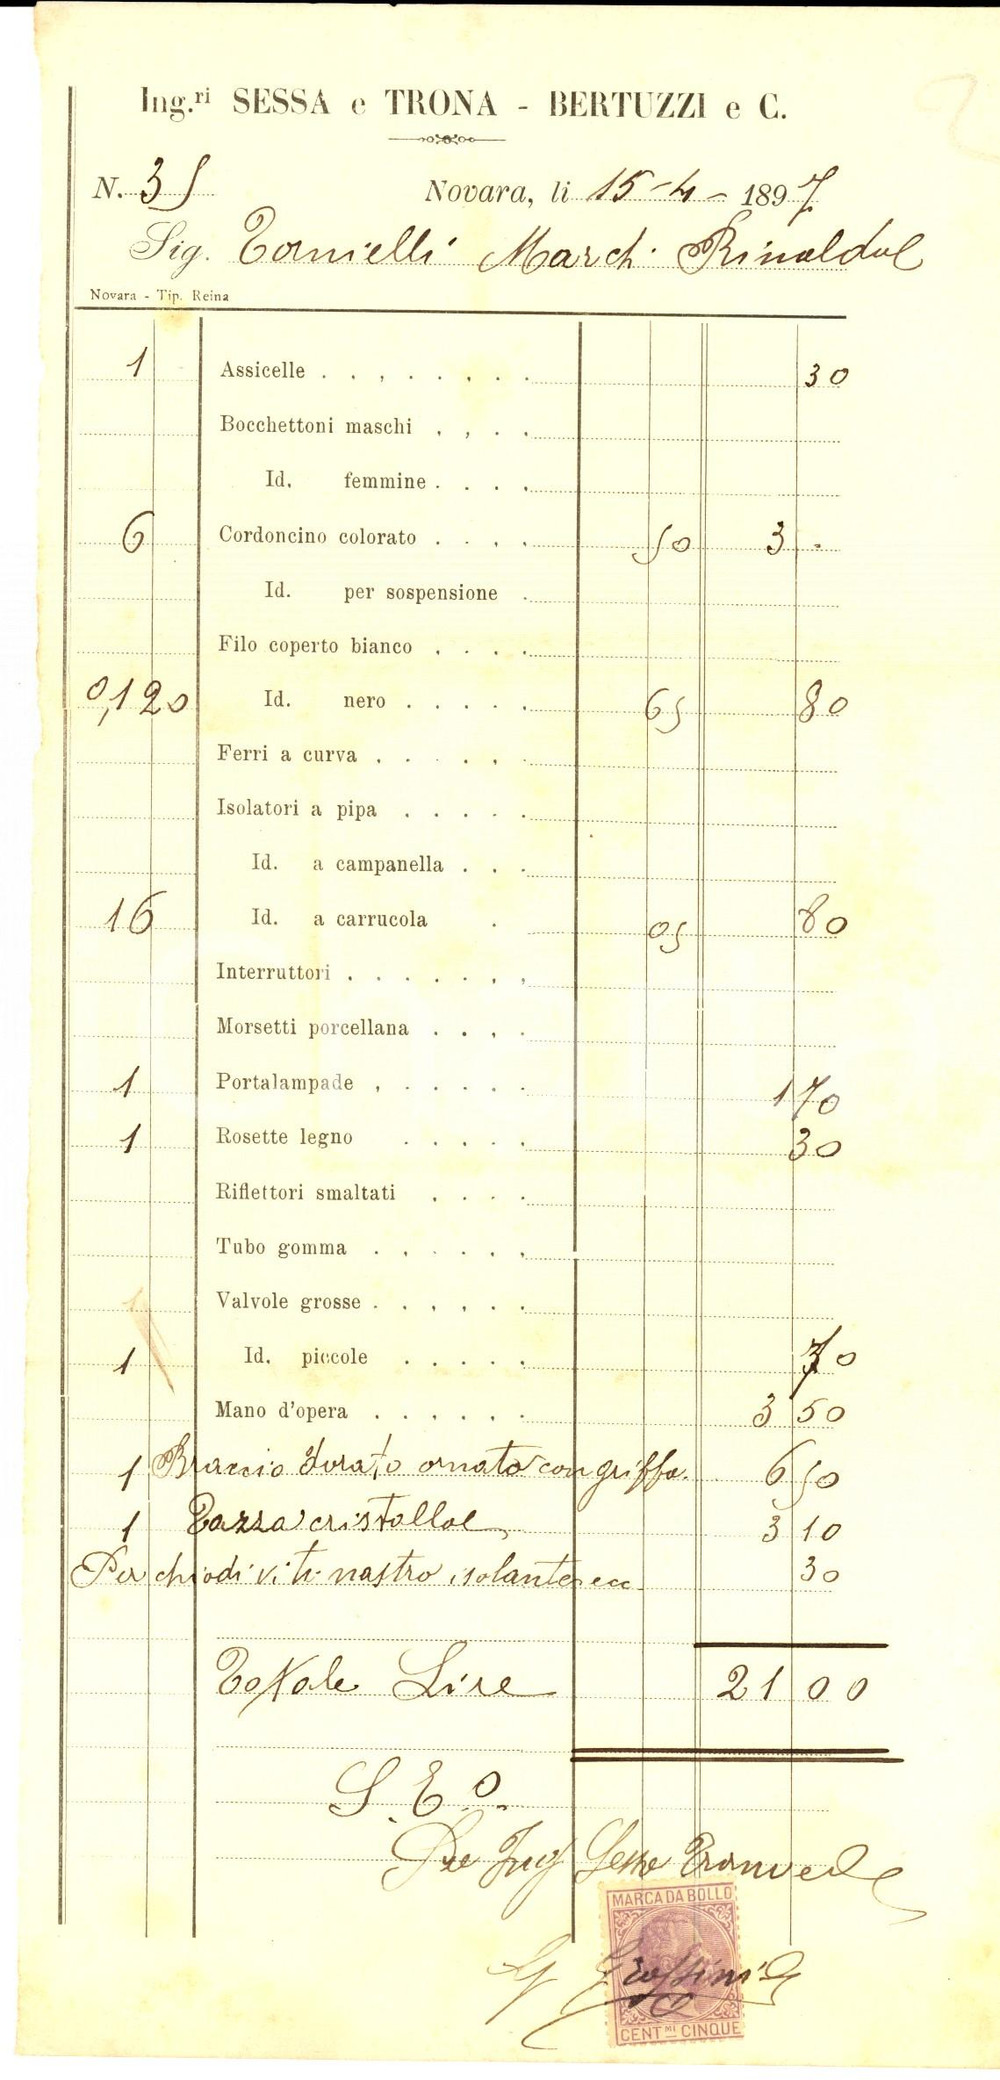 Ing.ri SESSA e TRONA - BERTUZZI e C.
N. 35 Novara, li 15-4-1897
Sig. Tornielli March. Rinaldo
Novara - Tip. Reina
1 Assicelle 30
Bocchettoni maschi
Id. femmine
6 Cordoncino colorato 50 3 -
Id. per sospensione
Filo coperto bianco
0,120 Id. nero 65 80
Ferri a curva
Isolatori a pipa
Id. a campanella
16 Id. a carrucola 05 80
Interruttori
Morsetti porcellana
1 Portalampade 1 70
1 Rosette legno 30
Riflettori smaltati
Tubo gomma
Valvole grosse
1 Id. piccole 70
Mano d'opera 3 50
1 Braccio dorato ornato con griffa 6 50
1 Tazza cristallo 3 10
Per chiodi viti nastro isolante ecc 30
Totale Lire 21 00
S. E. O.
Ing Sessa Trona e C
MARCA DA BOLLO
CENT.MI CINQUE